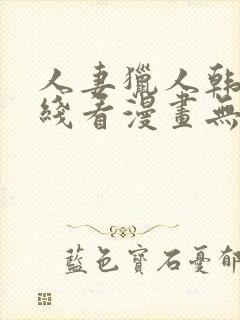 人妻獵人韩
綫看漫畫無
藍色寶石憂郁